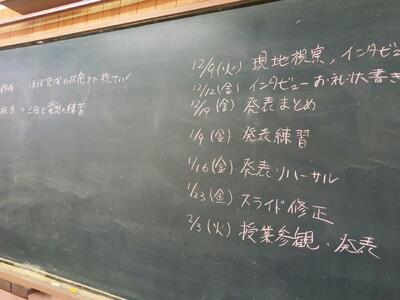 ほぼ完成の状態まで持っていく
三田と電話の練習
12/9(火) 現地視察、インタビュ
12/12(金) インタビューお礼状書き
12/19(金) 発表まとめ
1/9(金) 発表練習
1/16(金) 発表リハーサル
1/23(金) スライド修正
2/3(火) 授業参観・発表